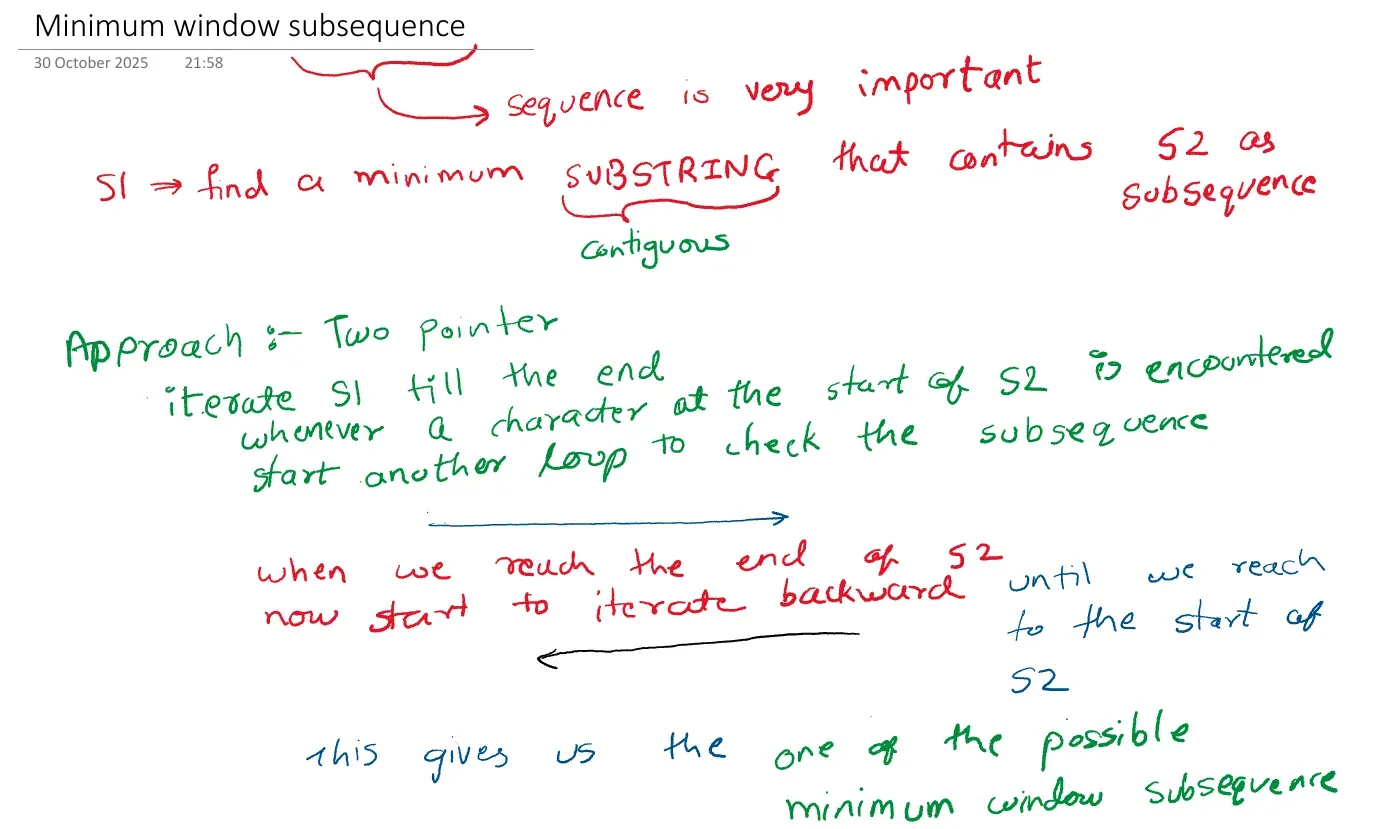 Minimum window subsequence
30 October 2025 21:58
sequence is very important
S1 ⇒ find a minimum SUBSTRING that contains S2 as
subsequence
contiguous
Approach :- Two pointer
iterate S1 till the end
whenever a character at the start of S2 is encountered
start another loop to check the subsequence
when we reach the end of S2
now start to iterate backward until we reach
to the start of
S2
this gives us the one of the possible
minimum window subsequence